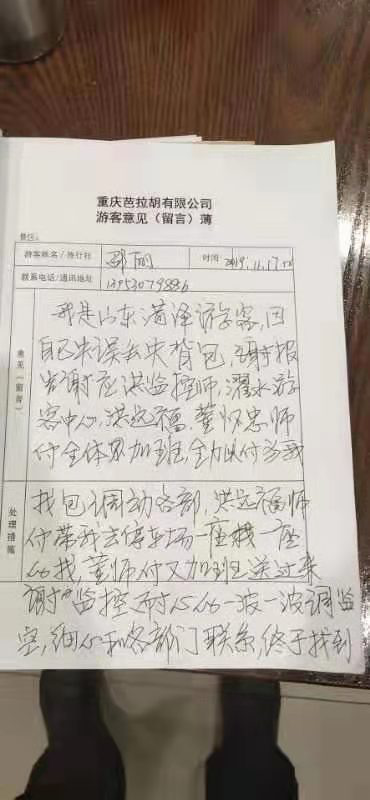 重庆芭拉胡有限公司
游客意见（留言）薄
景区：
游客姓名/旅行社 邵丽 时间 2019.11.17
联系电话/通讯地址 13953079886
意见（留言）
我是山东菏泽游客，因
自己失误丢失背包，
告谢应洪监控师，濯水游
客中心，洪远福，董怀忠师
付全体 加班，全力 付 我
找包调动各部，洪远福师
付带我去停车场一座挨一座
的找，董师付又加班送过来
处理措施
谢 监控耐心的一波一波调监
控，细心和各部门联系，终于找到